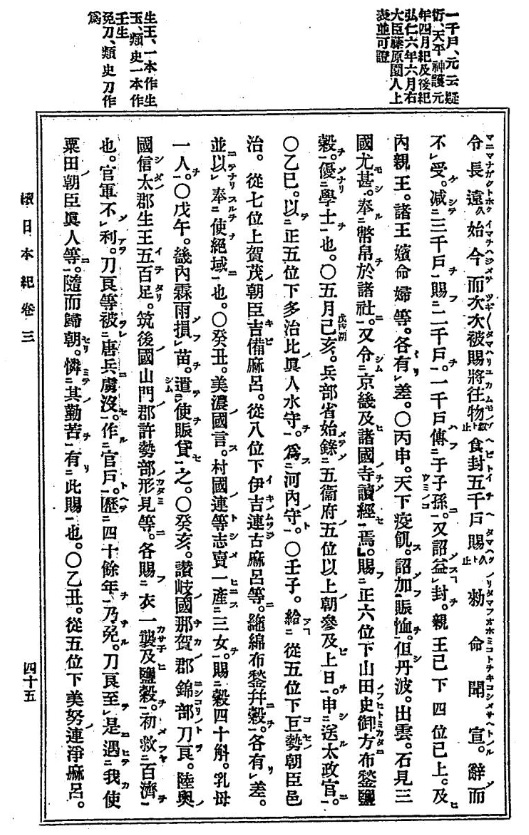 一千戶、元云疑
衍、天平神護元
年四月紀及後紀
弘仁六年六月右
大臣藤原園人上
表並可證
令長遠久始今而次次被賜將往物敍止食封五千戶賜久止勅命聞宣。辭而
不受。減三千戶賜二千戶。一千戶傳于子孫。又詔益封。親王已下四位已上。及
內親王。諸王嬪命婦等。各有差。○丙申。天下疫飢。詔加賑恤。但丹波。出雲。石見三
國尤甚。奉幣帛於諸社。又令京畿及諸國寺讀經焉。賜正六位下山田史御方布鍫鹽
穀。優學士也。○五月己亥。戊戌朔兵部省始錄五衞府五位以上朝參及上日。申送太政官。
○乙巳。以正五位下多治比眞人水守。爲河內守。○壬子。給從五位下巨勢朝臣邑
治。從七位上賀茂朝臣吉備麻呂。從八位下伊吉連古麻呂等。絁綿布鍫幷穀。各有差。
並以奉使絕域也。○癸丑。美濃國言。村國連等志賣一產三女。賜穀四十斛。乳母
一人。○戊午。畿內霖雨損苗。遣使賑貸之。○癸亥。讚岐國那賀郡錦部刀良。陸奧
國信太郡生王五百足。筑後國山門郡許勢部形見等。各賜衣一襲及鹽穀。初救百濟
也。官軍不利。刀良等被唐兵虜沒。作官戶。歷四十餘年乃免。刀良至是遇我使
粟田朝臣眞人等。隨而歸朝。憐其勤苦有此賜也。○乙丑。從五位下美努連淨麻呂。
生王、一本作生
玉、類史一本作
壬生
免刀、類史刀作
爲
續日本紀卷三
四十五